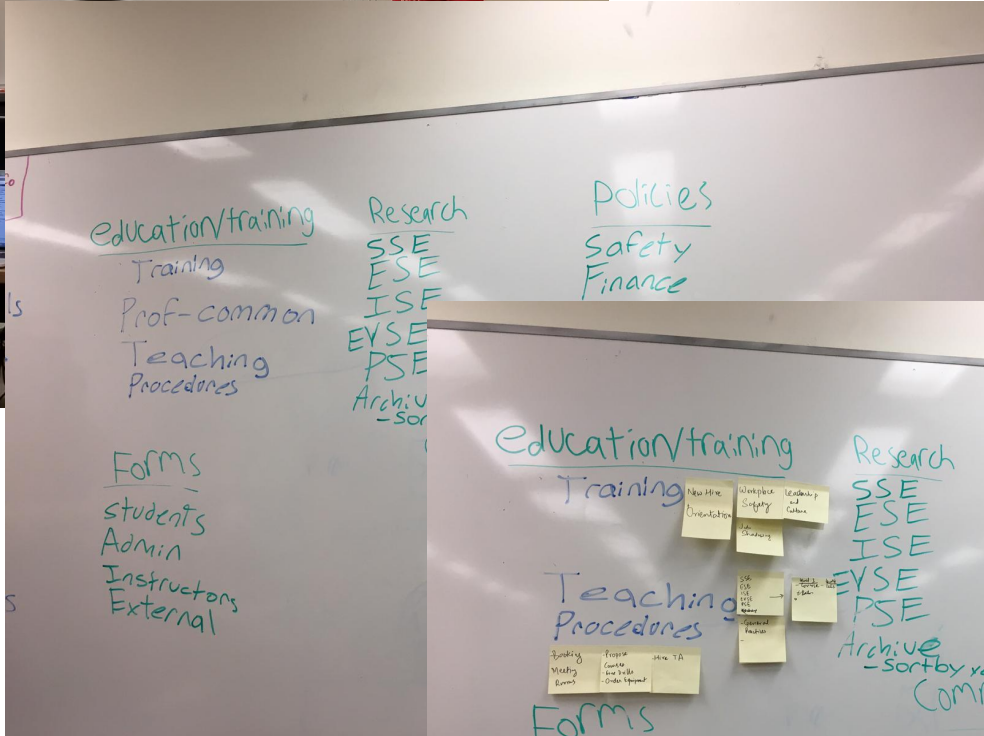 education/training
Training
Prof-common
Teaching
Procedures
Research
SSE
ESE
ISE
EVSE
PSE
Archiv
- Sor
Policies
Safety
Finance
Forms
Students
Admin
Instructors
External
ls
s
education/training
Training
New Hire
Orientation
Workplace
Safety
Leadership
and
Culture
Job
Shadowing
Teaching
SSE
ESE
ISE
EVSE
PSE
→
- General
Practices
-
Procedures
- Booking
Meeting
Rooms
- Propose
Courses
- fire Drills
- Order Equipment
- Hire TA
Forms
Research
SSE
ESE
ISE
EVSE
PSE
Archive
- Sort by
Comm